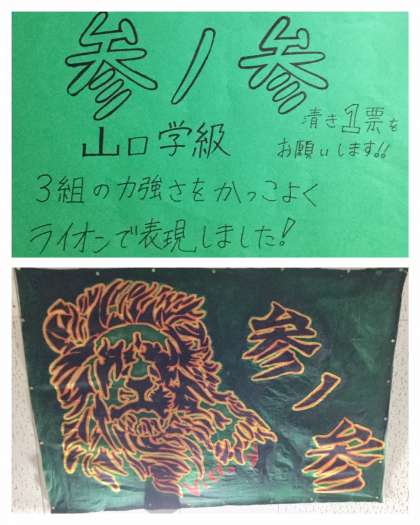 参ノ参
山口学級
清き1票を
お願いします!!
3組の力強さをかっこよく
ライオンで表現しました!
参ノ参